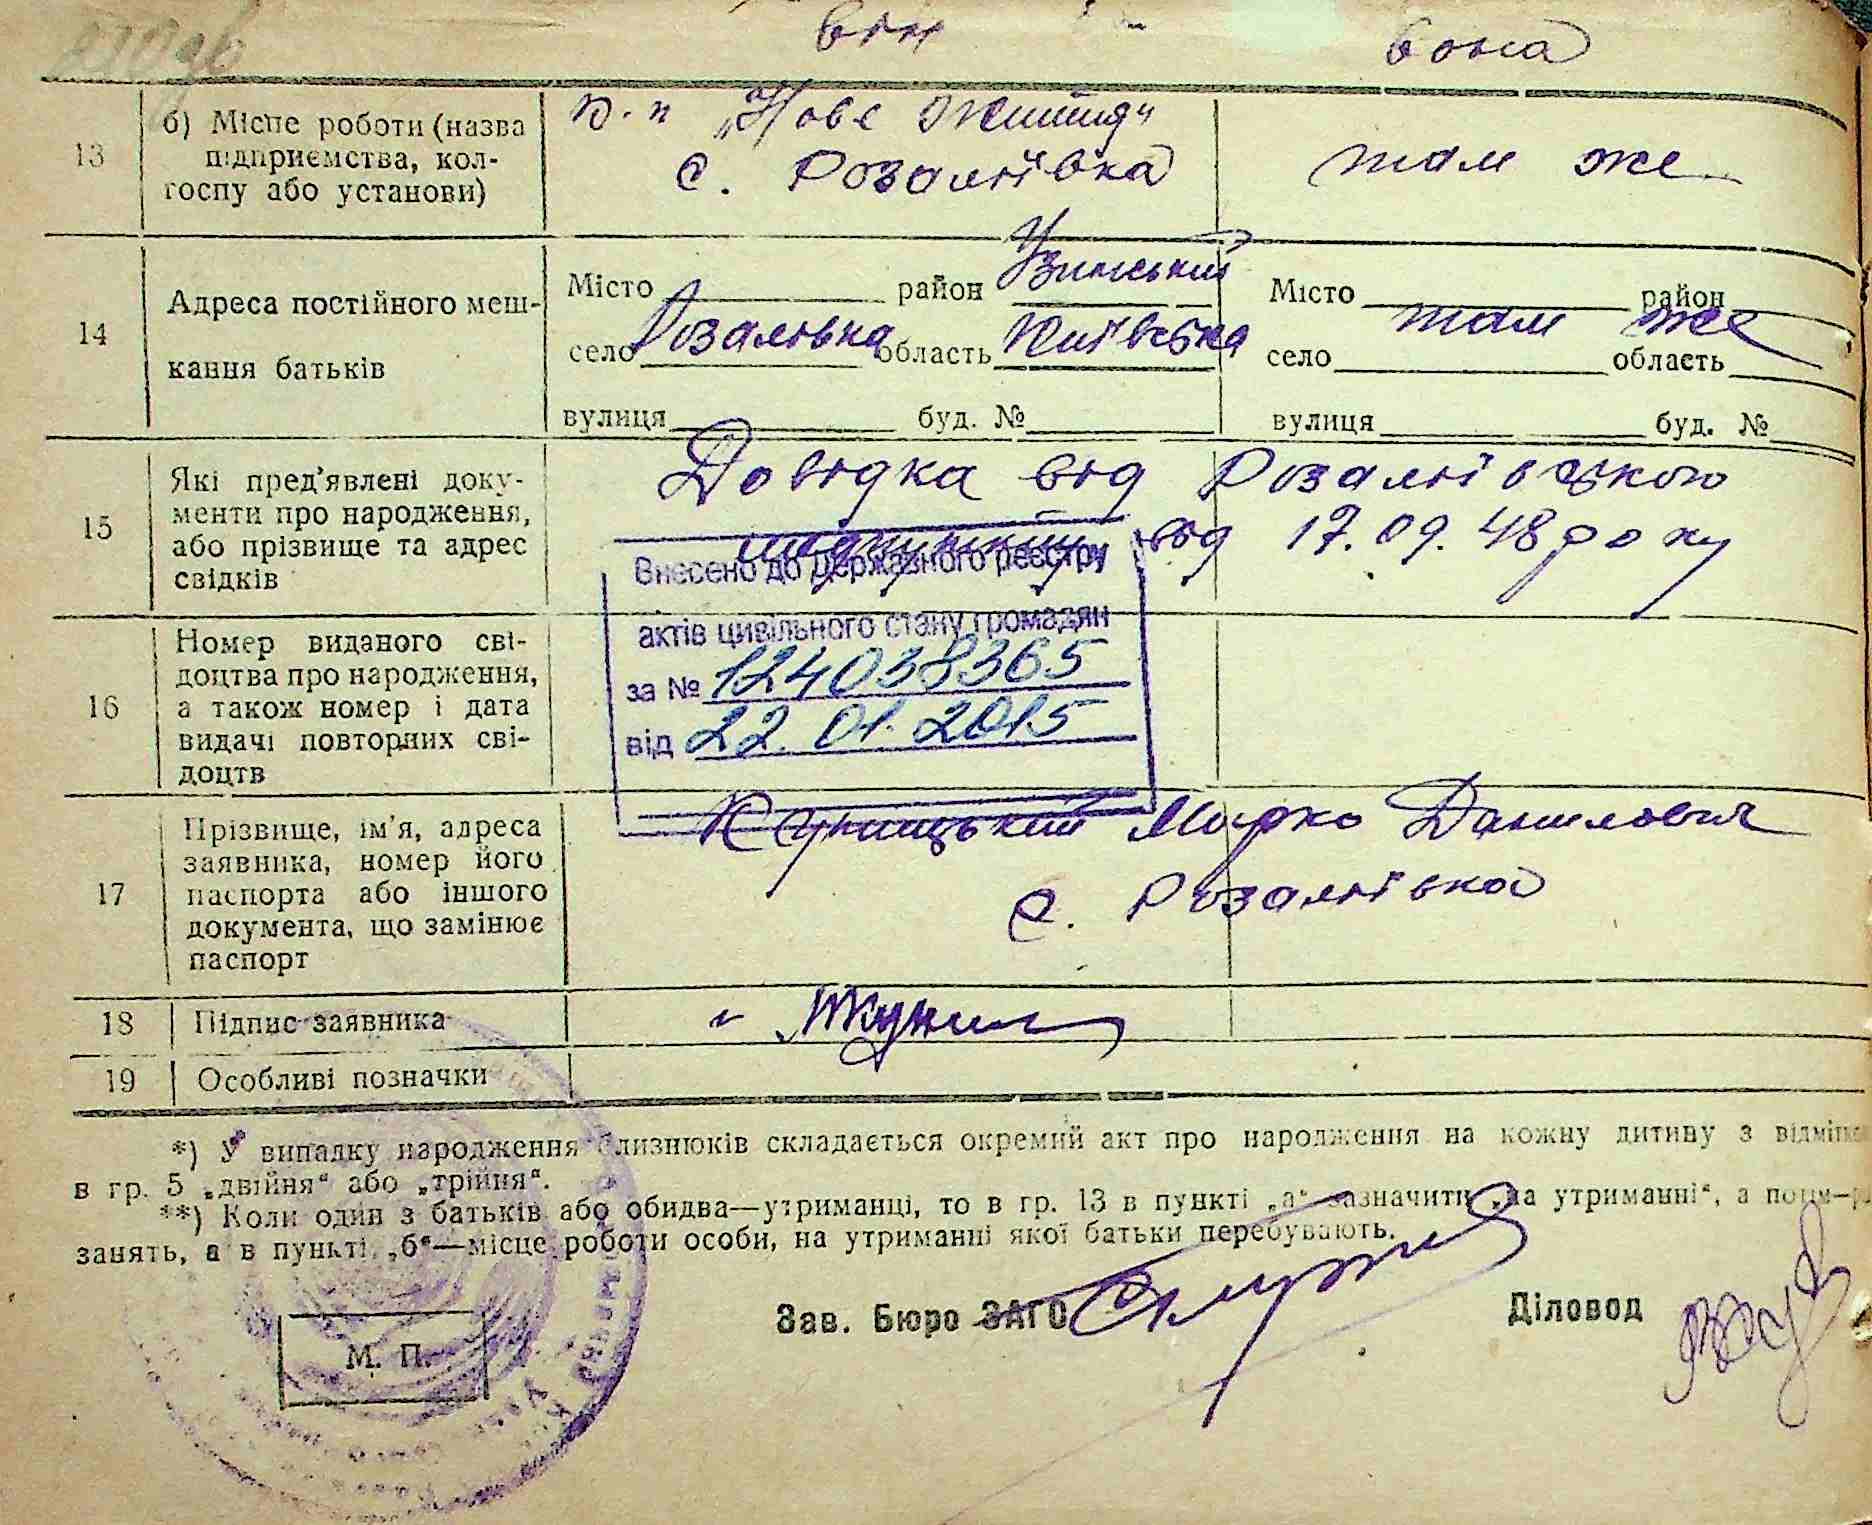 він вона
13 б) Місце роботи (назва підприємства, колгоспу або установи)
к-п „Нове життя“
с. Розаліївка
там же
14 Адреса постійного мешкання батьків
Місто район Узинський
село Розаліївка область Київська
вулиця буд. №
Місто район
там же
село область
вулиця буд. №
15 Які пред'явлені документи про народження, або прізвище та адрес свідків
Довідка від Розаліївського
від 17.09.48 року
Внесено до Державного реєстру
актів цивільного стану громадян
за № 124038365
від 22.01.2015
16 Номер виданого свідоцтва про народження, а також номер і дата видачі повторних свідоцтв
17 Прізвище, ім'я, адреса заявника, номер його паспорта або іншого документа, що замінює паспорт
Марко Данилович
с. Розаліївка
18 Підпис заявника
19 Особливі позначки
*) У випадку народження близнюків складається окремий акт про народження на кожну дитину з
в гр. 5 „двійня“ або „трійня“.
**) Коли один з батьків або обидва—утриманці, то в гр. 13 в пункті „а“ зазначити „на утриманні“, а
занять, а в пункті „б“—місце роботи особи, на утриманні якої батьки перебувають.
Зав. Бюро ЗАГС
Діловод
М. П.